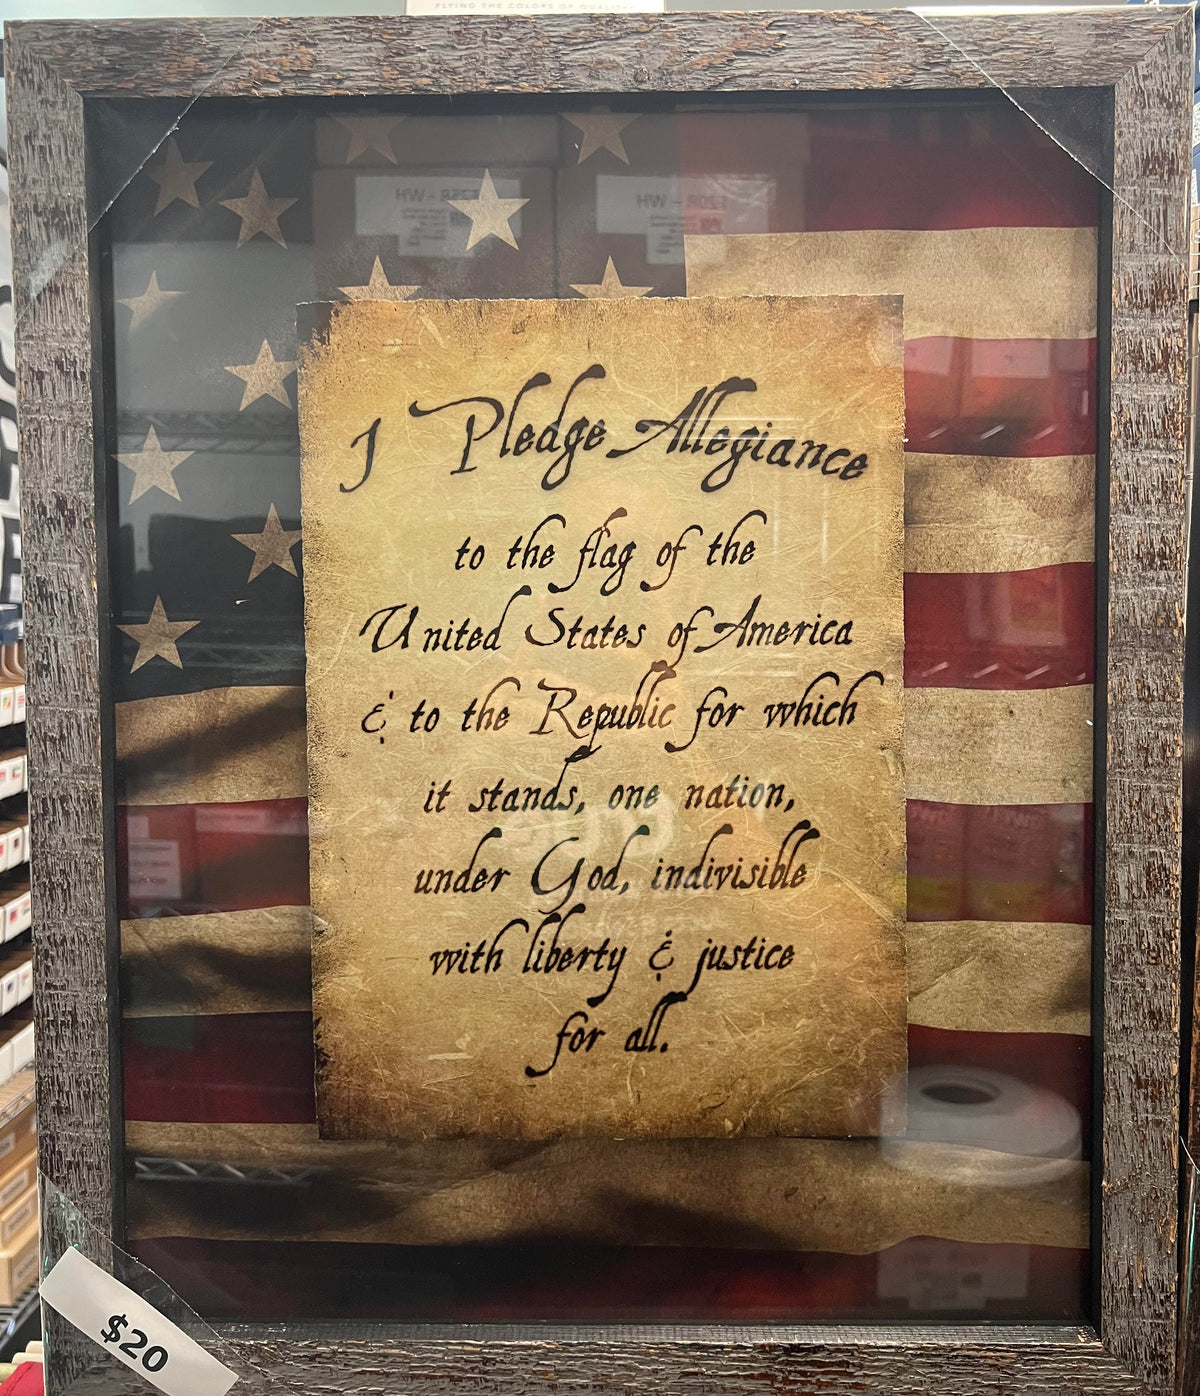 FLYING THE COLORS OF QUALITY
I Pledge Allegiance
to the flag of the
United States of America
& to the Republic for which
it stands, one nation,
under God, indivisible
with liberty & justice
for all.
$20